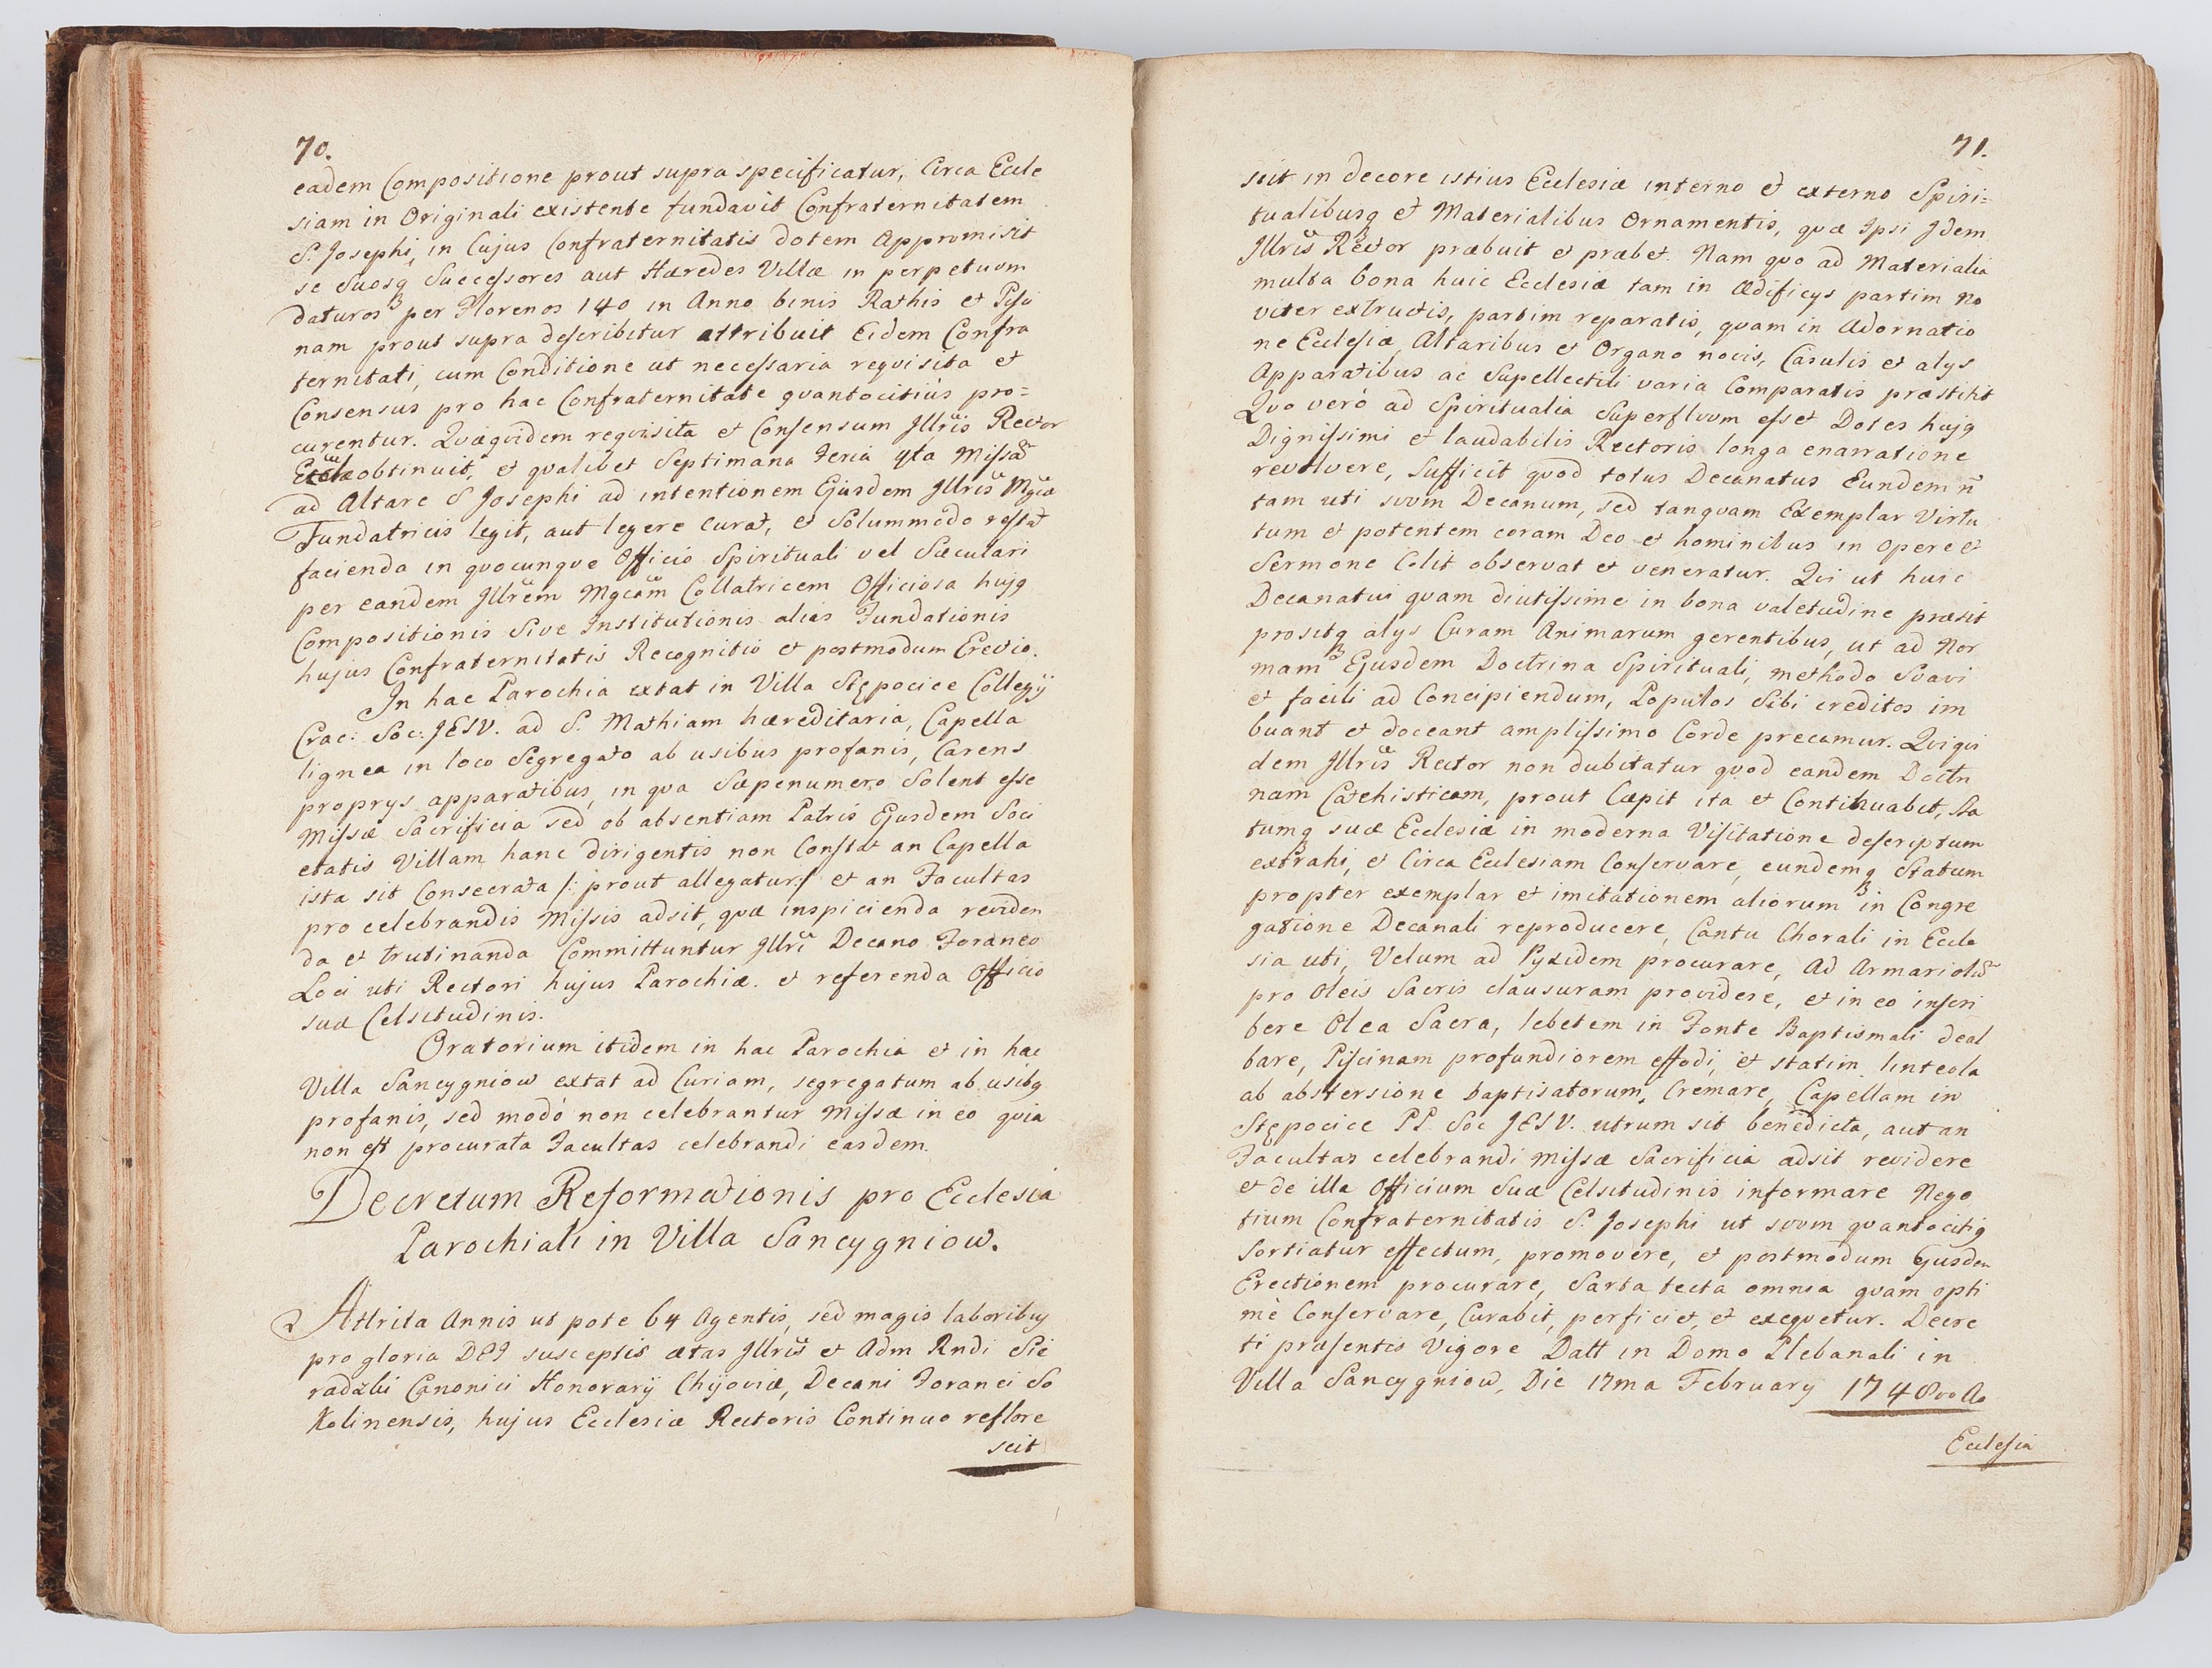 70.
eadem Compositione prout supra specificatur, Circa Eccle
siam in Originali existente fundavit Confraternitatem
S. Josephi, in Cujus Confraternitatis dotem Appromisit
se Suosq Successores aut Hæredes Villæ in perpetuum
daturos per Florenos 140 in Anno binis Rathis et Pisci
nam prout supra describitur attribuit Eidem Confra
ternitati, cum Conditione ut necessaria reqvisita et
Consensus pro hac Confraternitate qvantocitiùs pro=
curentur. Qvæqvidem reqvisita et Consensum Jllris Rector
Ecclæ obtinuit, et qvalibet Septimana Feria 4ta Missã
ad Altare S Josephi ad intentionem Ejusdem Jllris Mgcæ
Fundatricis legit, aut legere curat, et Solummodo restat
facienda in qvocunqve Officio Spirituali vel Sæculari
per eandem Jllrem Mgcam Collatricem Officiosa hujq
Compositionis Sive Institutionis alias Fundationis
hujus Confraternitatis Recognitio et postmodum Erectio.
In hac Parochia extat in Villa Stępocice Collegij
Crac: Soc: JESV. ad S. Mathiam hæreditaria, Capella
lignea in loco Segregato ab usibus profanis, Carens
proprys apparatibus, in qva Sæpenumero Solent esse
Missæ Sacrificia sed ob absentiam Patris Ejusdem Soci
etatis Villam hanc dirigentis non Constat an Capella
ista sit Consecrata /: prout allegatur:/ et an Facultas
pro celebrandis Missis adsit, qvæ inspicienda reviden
da et trutinanda Committuntur Jllri Decano Foraneo
Loci uti Rectori hujus Parochiæ. et referenda Officio
suæ Celsitudinis.
Oratorium itidem in hac Parochia et in hac
Villa Sancygniow extat ad Curiam, segregatum ab usibq
profanis, sed modò non celebrantur Missæ in eo qvia
non est procurata Facultas celebrandi easdem.
Decretum Reformationis pro Ecclesia
Parochiali in Villa Sancygniow.
Attrita Annis ut pote 64 Agentis, sed magis laboribq
pro gloria DEI susceptis ætas Jllris et Adm Rndi Sie
radzki Canonici Honorarij Chijoviæ, Decani Foranei So
Kolinensis, hujus Ecclesiæ Rectoris Continuo reflore
scit
71.
scit in decore istius Ecclesiæ interno et externo Spiri=
tualibusq et Materialibus Ornamentis, qvæ Ipsi Jdem
Jllris Rector præbuit et præbet. Nam qvo ad Materialia
multa bona huic Ecclesiæ tam in Ædificys partim No
viter extructis, partim reparatis, qvam in Adornatio
ne Ecclesiæ, Altaribus et Organo novis, Casulis et alys
Apparatibus ac Supellectili varia Comparatis præstitit
Qvo verò ad Spiritualia Superfluum esset Dotes hujq
Dignissimi et laudabilis Rectoris longa enarratione
revolvere, Sufficit qvod totus Decanatus Eundem ñ
tam uti suum Decanum, sed tanqvam Exemplar Virtu
tum et potentem coram Deo et hominibus in opere et
Sermone Colit observat et veneratur. Qvi ut huic
Decanatui qvam diutissime in bona valetudine præsit
prositq alys Curam Animarum gerentibus, ut ad Nor
mam Ejusdem Doctrina Spirituali, methodo Svavi
et facili ad Concipiendum, Populos Sibi creditos im
buant et doceant amplissimo Corde precamur. Qviqvi
dem Jllris Rector non dubitatur qvod eandem Doctri
nam Catehisticam, prout Cæpit ita et Continuabit, Sta
tumq suæ Ecclesiæ in moderna Visitatione descriptum
extrahi, et Circa Ecclesiam Conservare, eundemq Statum
propter exemplar et imitationem aliorum in Congre
gatione Decanali reproducere, Cantu Chorali in Eccle
sia uti, Velum ad Pyxidem procurare, Ad Armariolũ
pro Oleis Sacris clausuram providere, et in eo inscri
bere Olea Sacra, lebetem in Fonte Baptismali deal
bare, Piscinam profundiorem effodi, et statim linteola
ab abstersione baptisatorum, Cremare, Capellam in
Stępocice PP. Soc JESV. utrum sit benedicta, aut an
Facultas celebrandi Missæ Sacrificia adsit revidere
et de illa Officium Suæ Celsitudinis informare Nego
tium Confraternitatis S. Josephi ut suum qvantocitiq
Sortiatur effectum, promovere, et postmodum Ejusdem
Erectionem procurare, Sarta tecta omnia qvam opti
mè Conservare, Curabit, perficiet, et exeqvetur. Decre
ti præsentis Vigore Datt in Domo Plebanali in
Villa Sancygniow, Die 17ma February 1748vo Ao
Ecclesia